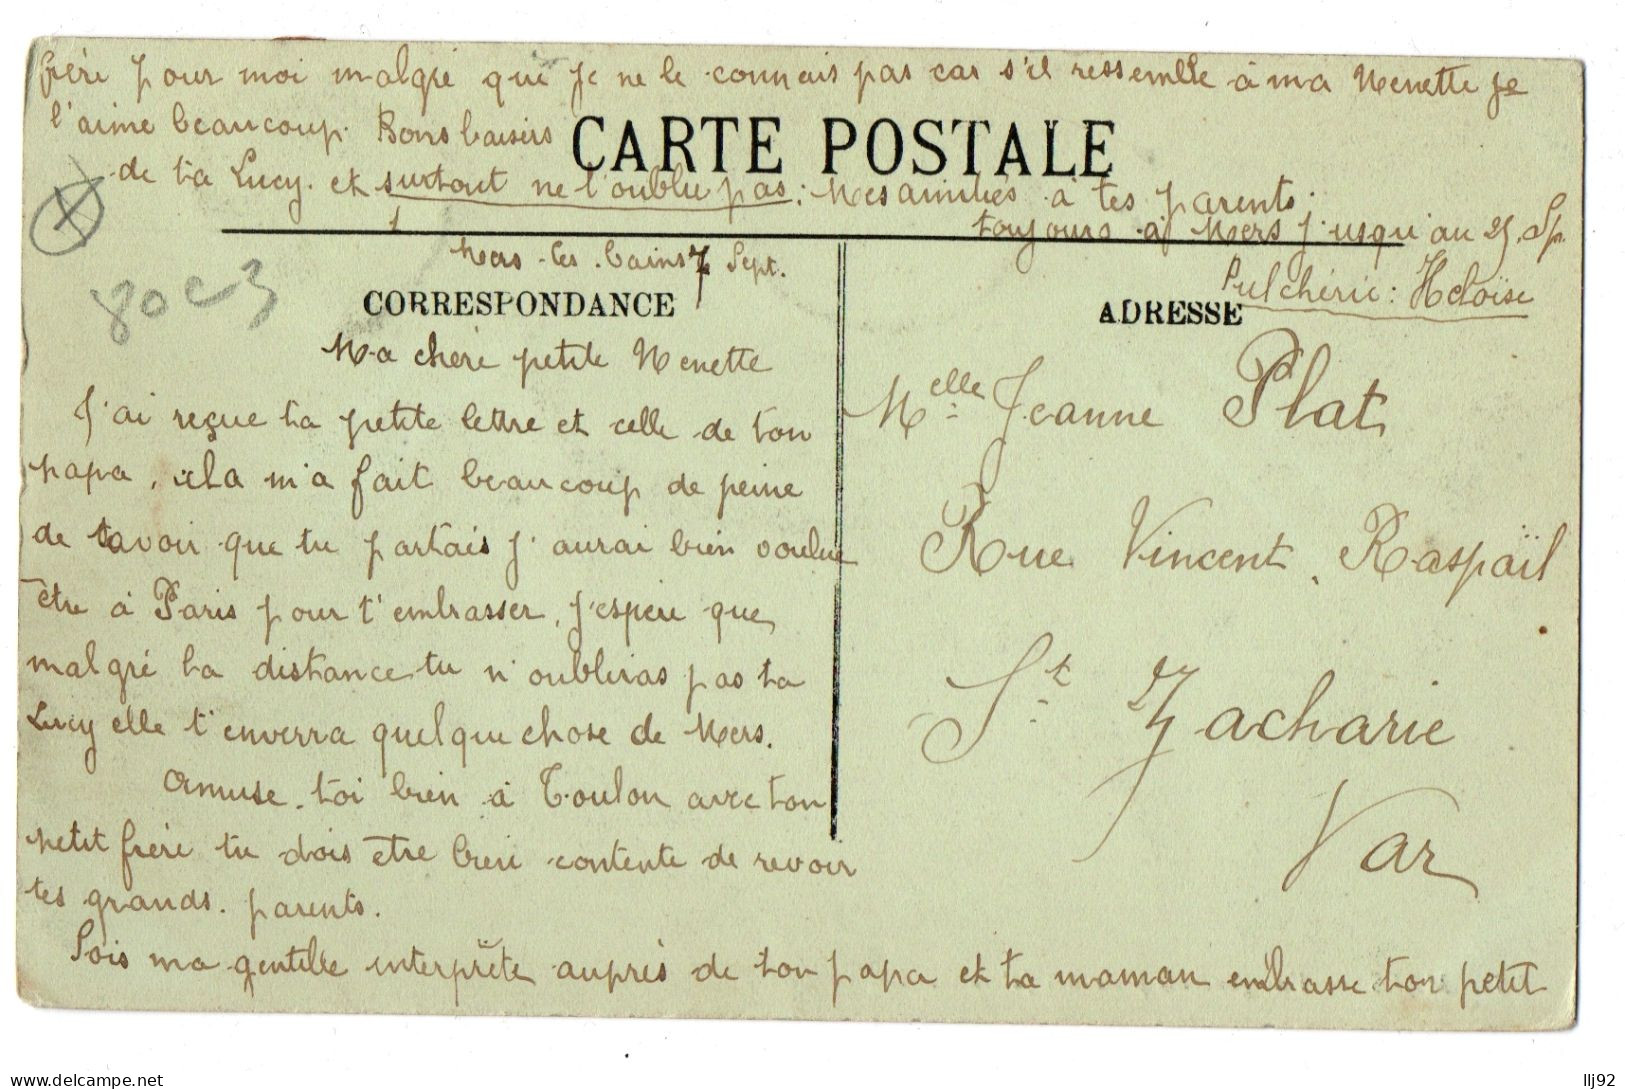 Mers-les-bains 7 Sept.
CORRESPONDANCE
Ma chère petite Nenette
J'ai reçue ta petite lettre et celle de ton
papa, cela m'a fait beaucoup de peine
de savoir que tu partais j'aurai bien voulue
être à Paris pour t'embrasser, j'espère que
malgré la distance tu n'oublieras pas ta
Lucy elle t'enverra quelque chose de Mers.
Amuse-toi bien à Toulon avec ton
petit frère tu dois être bien contente de revoir
tes grands-parents.
Sois ma gentille interprète auprès de ton papa et ta maman embrasse ton petit
frère pour moi malgré que je ne le connais pas car s'il ressemble à ma Nenette je
l'aime beaucoup. Bons baisers
CARTE POSTALE
de ta Lucy. et surtout ne l'oublie pas: Mes amitiés à tes parents.
toujours à Mers jusqu'au 25. Sp.
Pulchérie: Héloïse
ADRESSE
Melle Jeanne Plat
Rue Vincent Raspaïl
St Zacharie
Var
80 c 3
delcampe.net
llj92